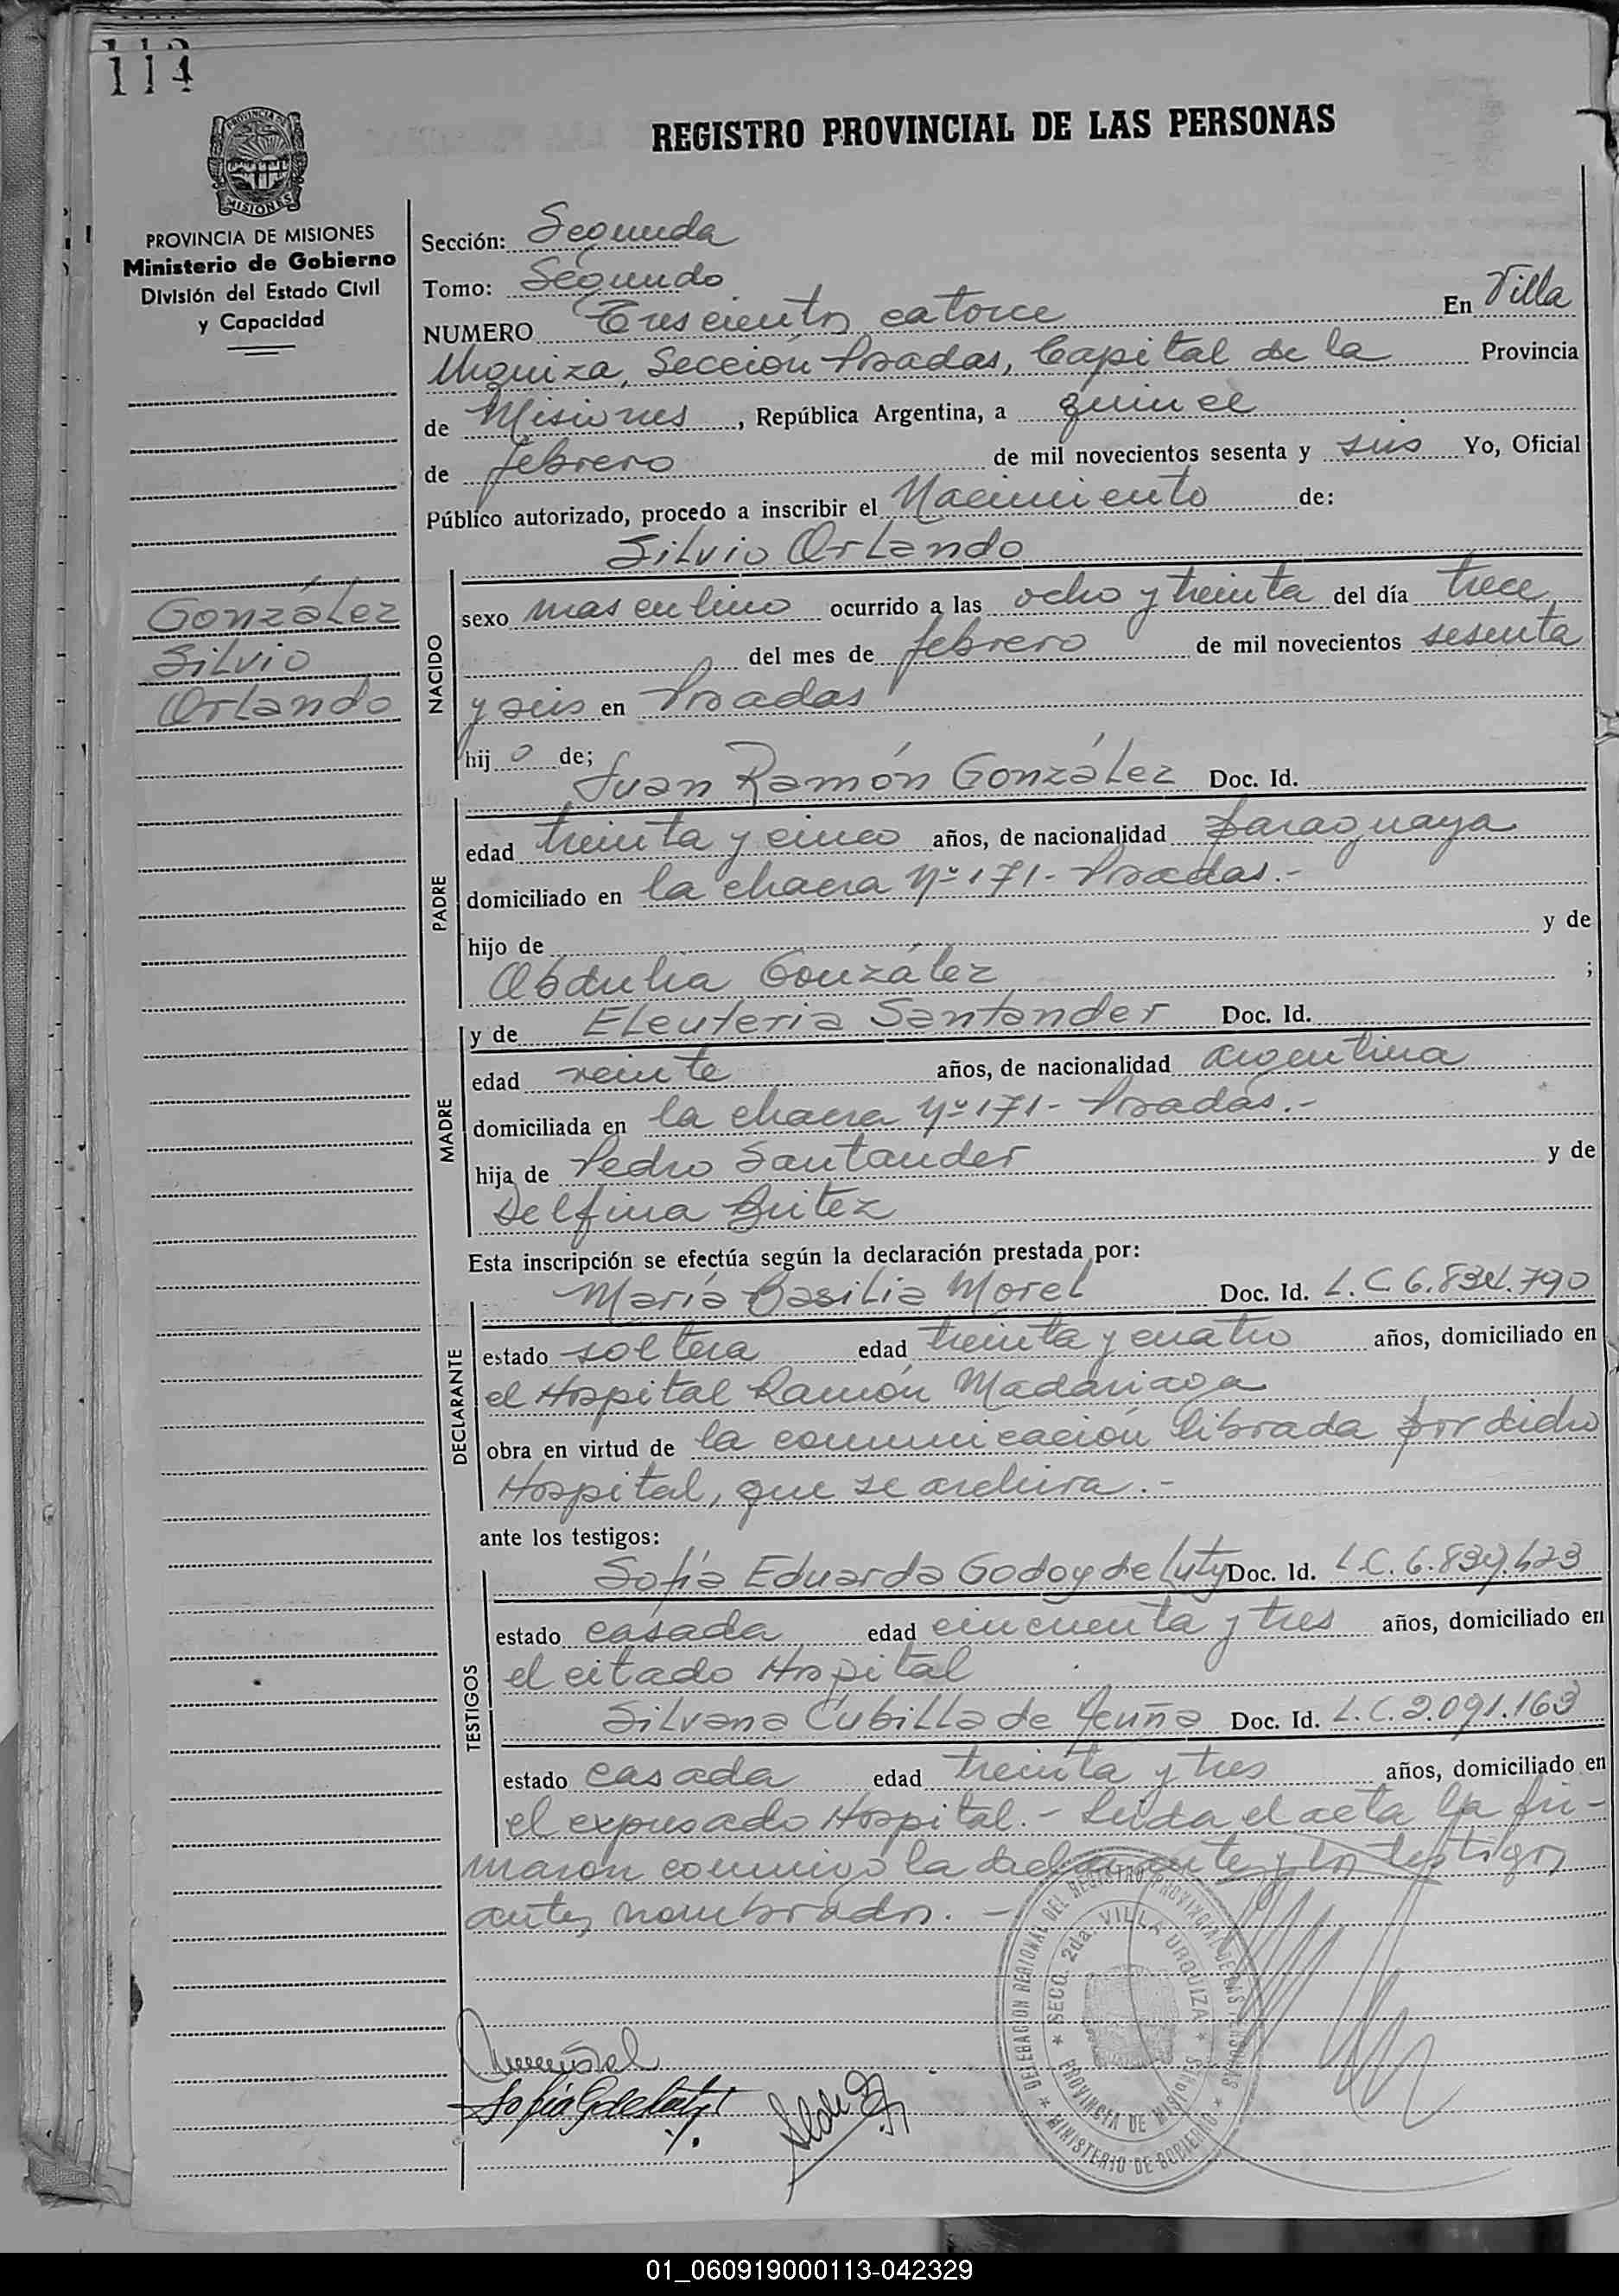 114
REGISTRO PROVINCIAL DE LAS PERSONAS
PROVINCIA DE MISIONES
Ministerio de Gobierno
División del Estado Civil
y Capacidad
González
Silvio
Orlando
Sección: Segunda
Tomo: Segundo
NUMERO Trescientos catorce En Villa
Urquiza, Sección Posadas, Capital de la Provincia
de Misiones, República Argentina, a quince
de febrero de mil novecientos sesenta y seis Yo, Oficial
Público autorizado, procedo a inscribir el Nacimiento de:
Silvio Orlando
NACIDO
sexo masculino ocurrido a las ocho y treinta del día trece
del mes de febrero de mil novecientos sesenta
y seis en Posadas
hij o de;
Juan Ramón González Doc. Id.
PADRE
edad treinta y cinco años, de nacionalidad paraguaya
domiciliado en la chacra Nº 171- Posadas.-
hijo de y de
Obdulia González ;
y de Eleuteria Santander Doc. Id.
MADRE
edad veinte años, de nacionalidad argentina
domiciliada en la chacra Nº 171- Posadas.-
hija de Pedro Santander y de
Delfina Britez
Esta inscripción se efectúa según la declaración prestada por:
María Basilia Morel Doc. Id. L.C 6.834.790
DECLARANTE
estado soltera edad treinta y cuatro años, domiciliado en
el Hospital Ramón Madariaga
obra en virtud de la comunicación librada por dicho
Hospital, que se archiva.-
ante los testigos:
Sofía Eduarda Godoy de Luty Doc. Id. L.C. 6.839.423
TESTIGOS
estado casada edad cincuenta y tres años, domiciliado en
el citado Hospital
Silvana Cubilla de Acuña Doc. Id. L.C. 2.091.163
estado casada edad treinta y tres años, domiciliado en
el expresado Hospital.- Leida el acta la fir-
maron conmigo la declarante y los testigos
antes nombrados.-
DELEGACION REGIONAL DEL REGISTRO PROVINCIAL DE LAS PERSONAS
SECC. 2da. VILLA URQUIZA
PROVINCIA DE MISIONES
MINISTERIO DE GOBIERNO
01_060919000113-042329